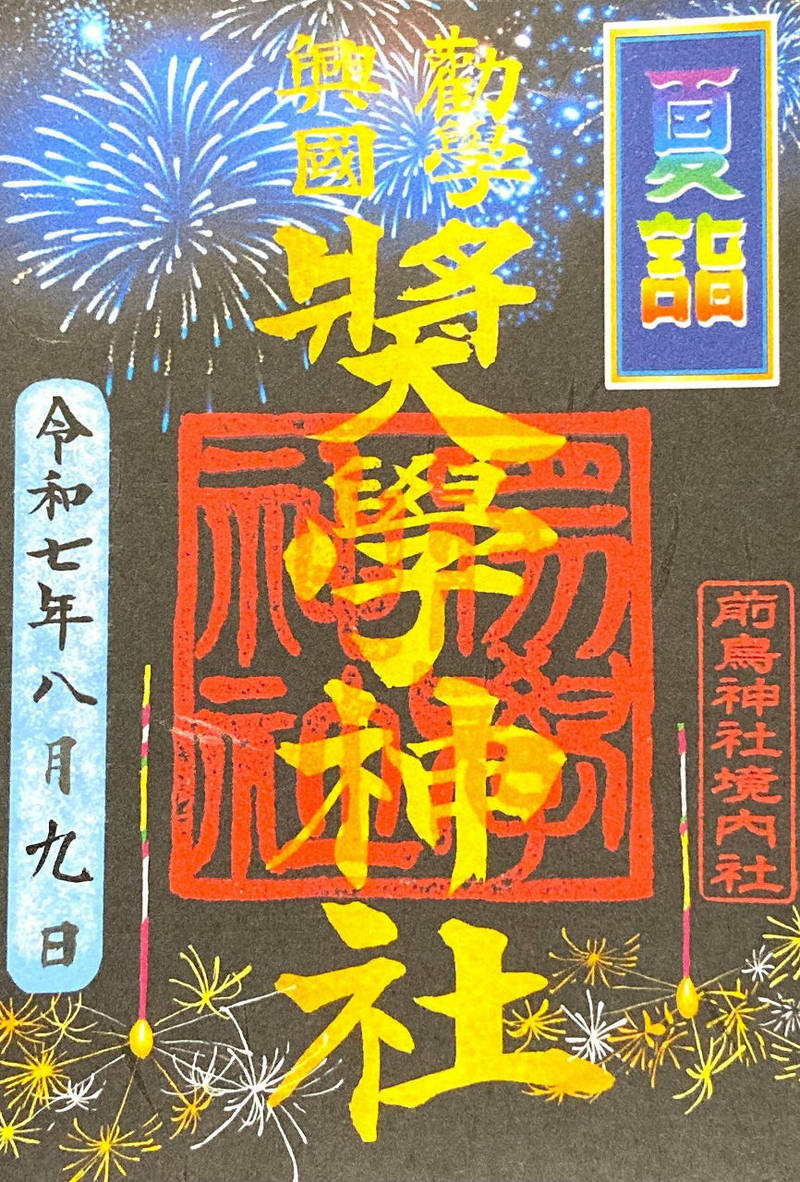 夏詣
前鳥神社境内社
勸學
興國
奬學神社
令和七年八月九日